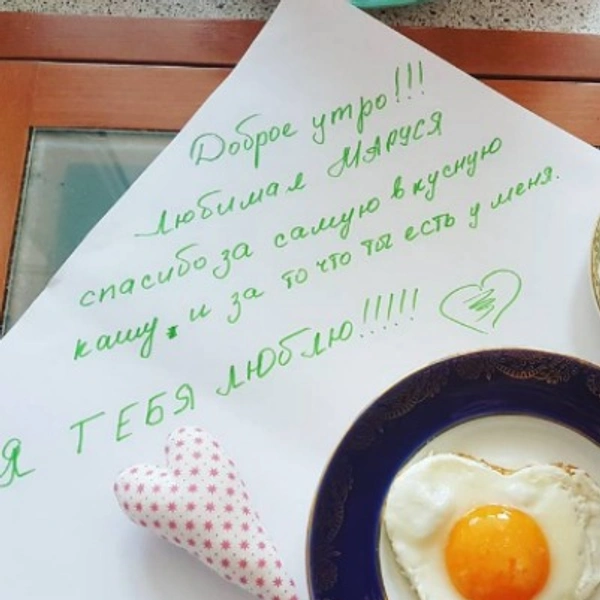 Доброе утро!!!
любимая МАРУСЯ
спасибо за самую вкусную
кашу, и за то что ты есть у меня.
Я ТЕБЯ ЛЮБЛЮ!!!!!